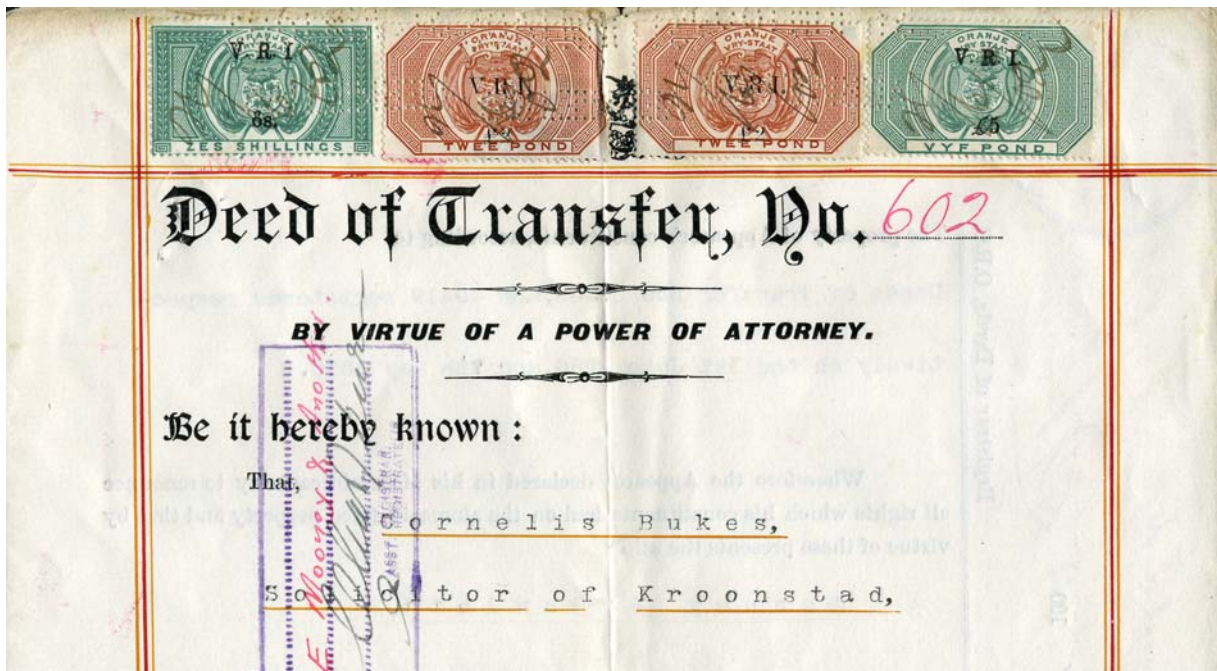 ORANJE VRY-STAAT V.R.I 6s. ZES SHILLINGS
ORANJE VRY-STAAT V.R.I. £2 TWEE POND
ORANJE VRY-STAAT V.R.I. £2 TWEE POND
ORANJE VRY-STAAT V.R.I. £5 VYF POND
Deed of Transfer, No. 602
BY VIRTUE OF A POWER OF ATTORNEY.
Be it hereby known:
That,
Cornelis Bukes,
Solicitor of Kroonstad,
E Mooyer & Another
ASST. REGISTRAR